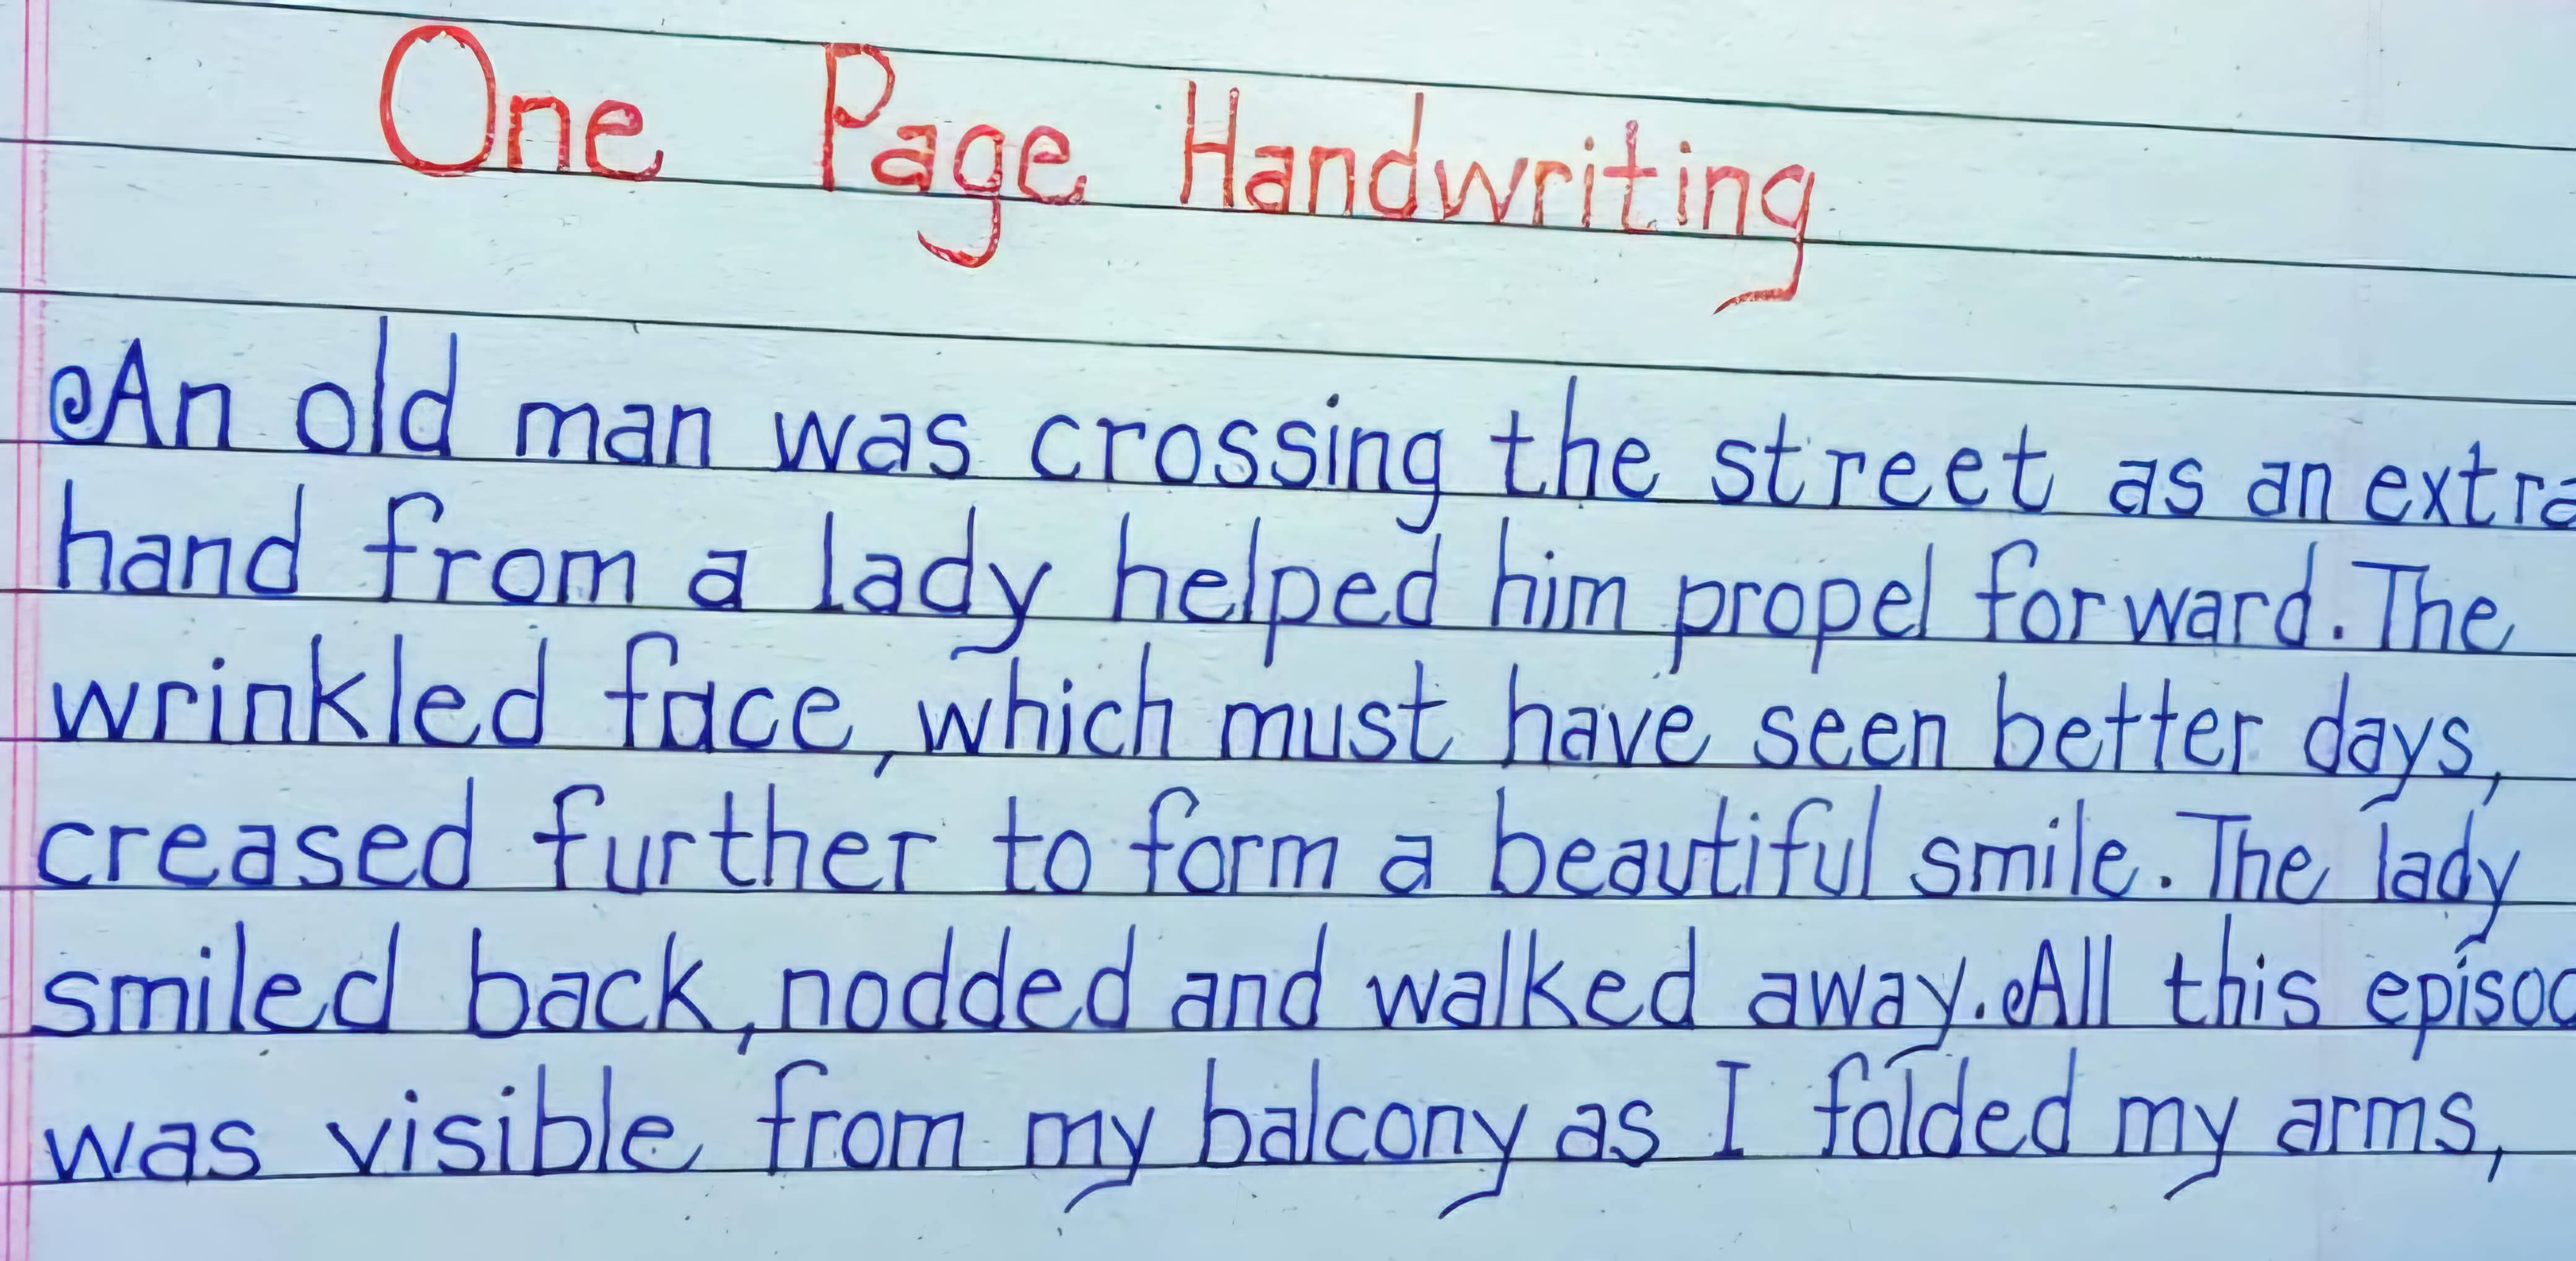 One Page Handwriting
An old man was crossing the street as an extra
hand from a lady helped him propel forward. The
wrinkled face, which must have seen better days,
creased further to form a beautiful smile. The lady
smiled back, nodded and walked away. All this
was visible from my balcony as I folded my arms,